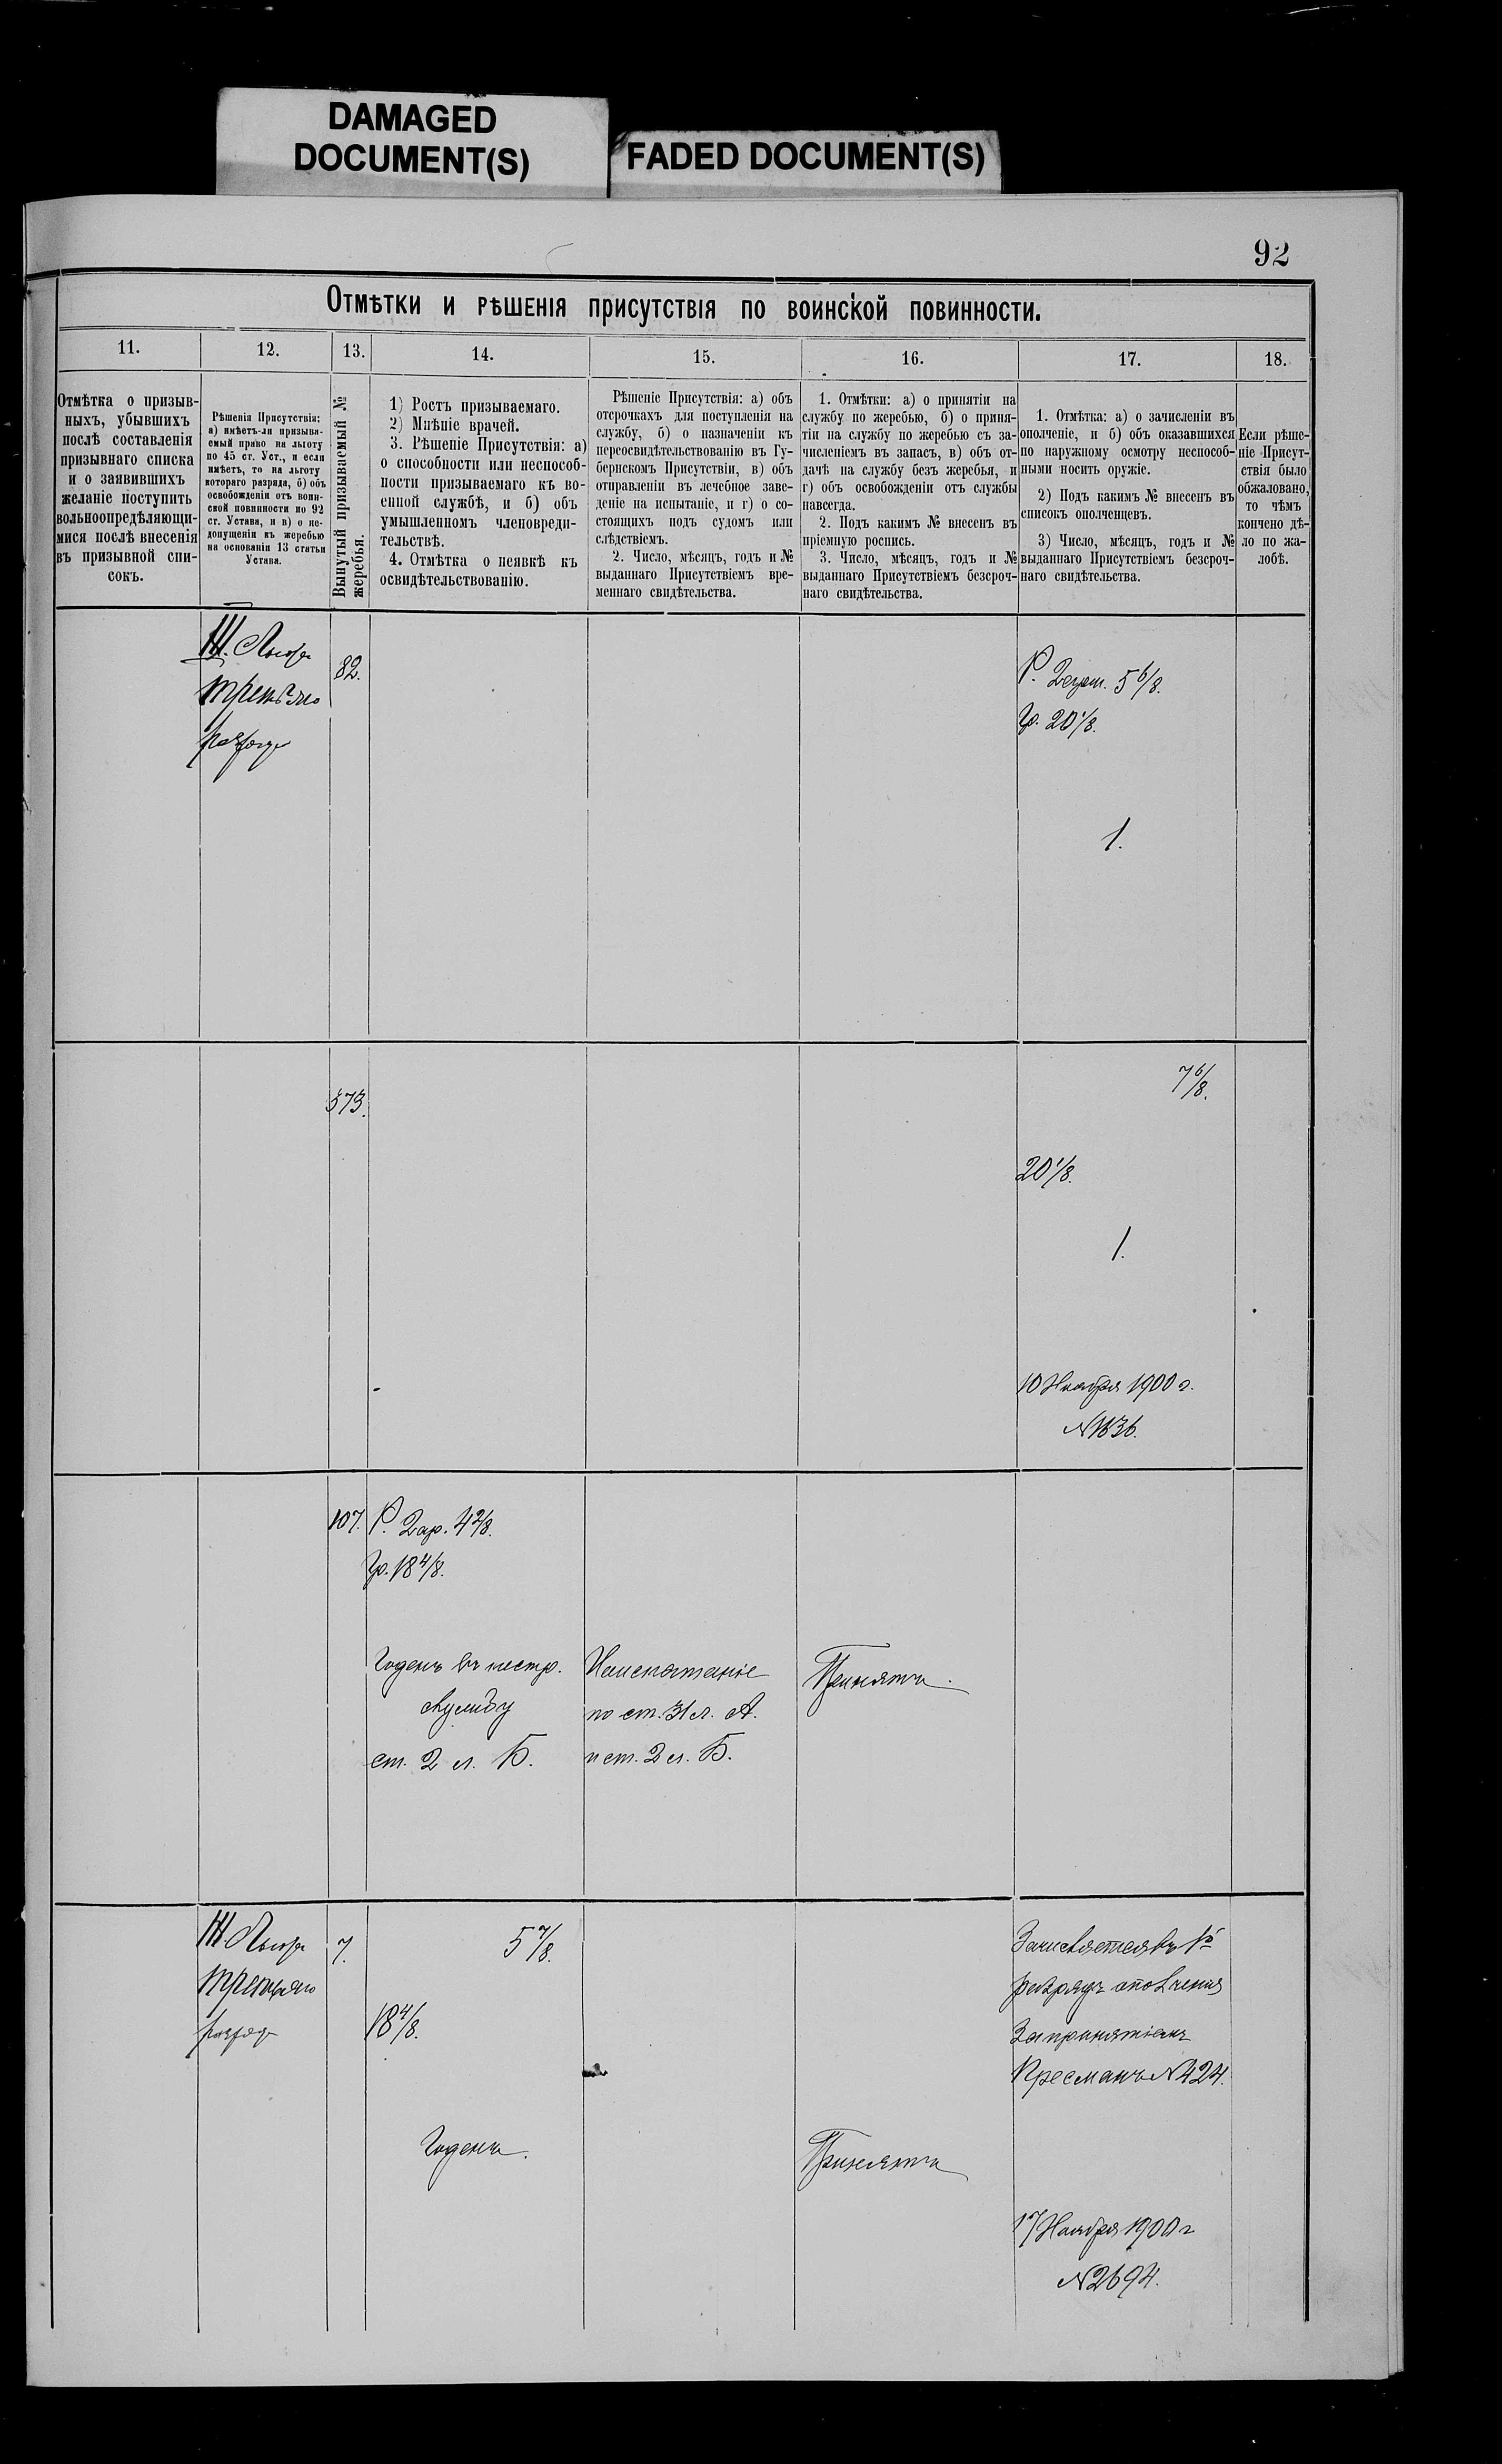 DAMAGED
DOCUMENT(S)
FADED DOCUMENT(S)
92
Отмѣтки и рѣшенія присутствія по воинской повинности.
11.
12.
13.
14.
15.
16.
17.
18.
Отмѣтка о призыв-
ныхъ, убывшихъ
послѣ составленія
призывнаго списка
и о заявившихъ
желаніе поступить
вольноопредѣляющи-
мися послѣ внесенія
въ призывной спи-
сокъ.
Рѣшенія Присутствія:
а) имѣетъ-ли призыва-
емый право на льготу
по 45 ст. Уст., и если
имѣетъ, то на льготу
котораго разряда, б) объ
освобожденіи отъ воин-
ской повинности по 92
ст. Устава, и в) о не-
допущеніи къ жеребью
на основаніи 13 статьи
Устава.
Вынутый призываемый №
жеребья.
1) Ростъ призываемаго.
2) Мнѣніе врачей.
3. Рѣшеніе Присутствія: а)
о способности или неспособ-
ности призываемаго къ во-
енной службѣ, и б) объ
умышленномъ членовреди-
тельствѣ.
4. Отмѣтка о неявкѣ къ
освидѣтельствованію.
Рѣшеніе Присутствія: а) объ
отсрочкахъ для поступленія на
службу, б) о назначеніи къ
переосвидѣтельствованію въ Гу-
бернскомъ Присутствіи, в) объ
отправленіи въ лечебное заве-
деніе на испытаніе, и г) о со-
стоящихъ подъ судомъ или
слѣдствіемъ.
2. Число, мѣсяцъ, годъ и №
выданнаго Присутствіемъ вре-
меннаго свидѣтельства.
1. Отмѣтки: а) о принятіи на
службу по жеребью, б) о приня-
тіи на службу по жеребью съ за-
численіемъ въ запасъ, в) объ от-
дачѣ на службу безъ жеребья, и
г) объ освобожденіи отъ службы
навсегда.
2. Подъ какимъ № внесенъ въ
пріемную роспись.
3. Число, мѣсяцъ, годъ и №
выданнаго Присутствіемъ безсроч-
наго свидѣтельства.
1. Отмѣтка: а) о зачисленіи въ
ополченіе, и б) объ оказавшихся
по наружному осмотру неспособ-
ными носить оружіе.
2) Подъ какимъ № внесенъ въ
списокъ ополченцевъ.
3) Число, мѣсяцъ, годъ и №
выданнаго Присутствіемъ безсроч-
наго свидѣтельства.
Если рѣше-
ніе Присут-
ствія было
обжаловано,
то чѣмъ
кончено дѣ-
ло по жа-
лобѣ.
III. Льгота
третьяго
разряда
82.
Р. 2 5 6/8.
Гр. 20 1/8.
1.
373.
7 6/8.
20 1/8.
1.
10 Ноября 1900 г.
N 1836.
107.
Р. 2 ар. 4 2/8.
Гр. 18 4/8.
Годенъ въ нестр.
службу
ст. 2 л. Б.
На испытаніе
по ст. 31 л. А.
и ст. 2 л. Б.
Принятъ.
III Льгота
третьяго
разряда
7.
5 7/8.
18 4/8.
Годенъ.
Принятъ
Зачисляется въ 1й
разрядъ ополченія
За принятіемъ
Кресманъ N 424.
17 Ноября 1900 г
N 2694.